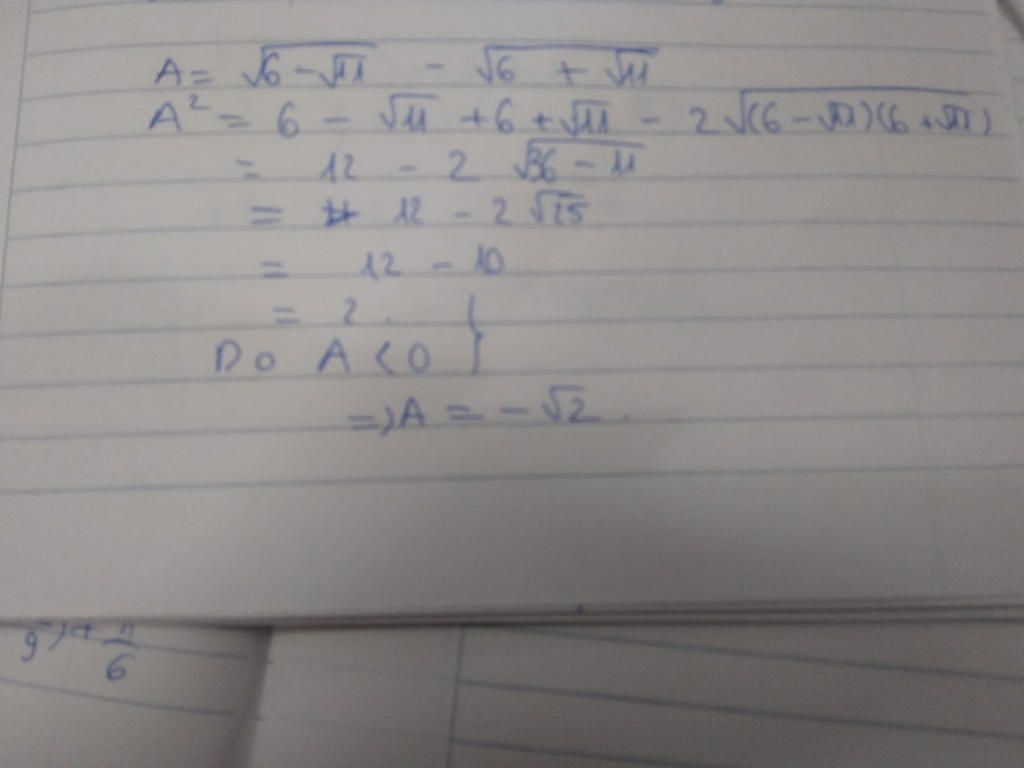 A = √(6 - √11) - √(6 + √11)
A² = 6 - √11 + 6 + √11 - 2√((6 - √11)(6 + √11))
= 12 - 2 √(36 - 11)
= 12 - 2√25
= 12 - 10
= 2.
Do A < 0 }
=> A = -√2.
) + π/6